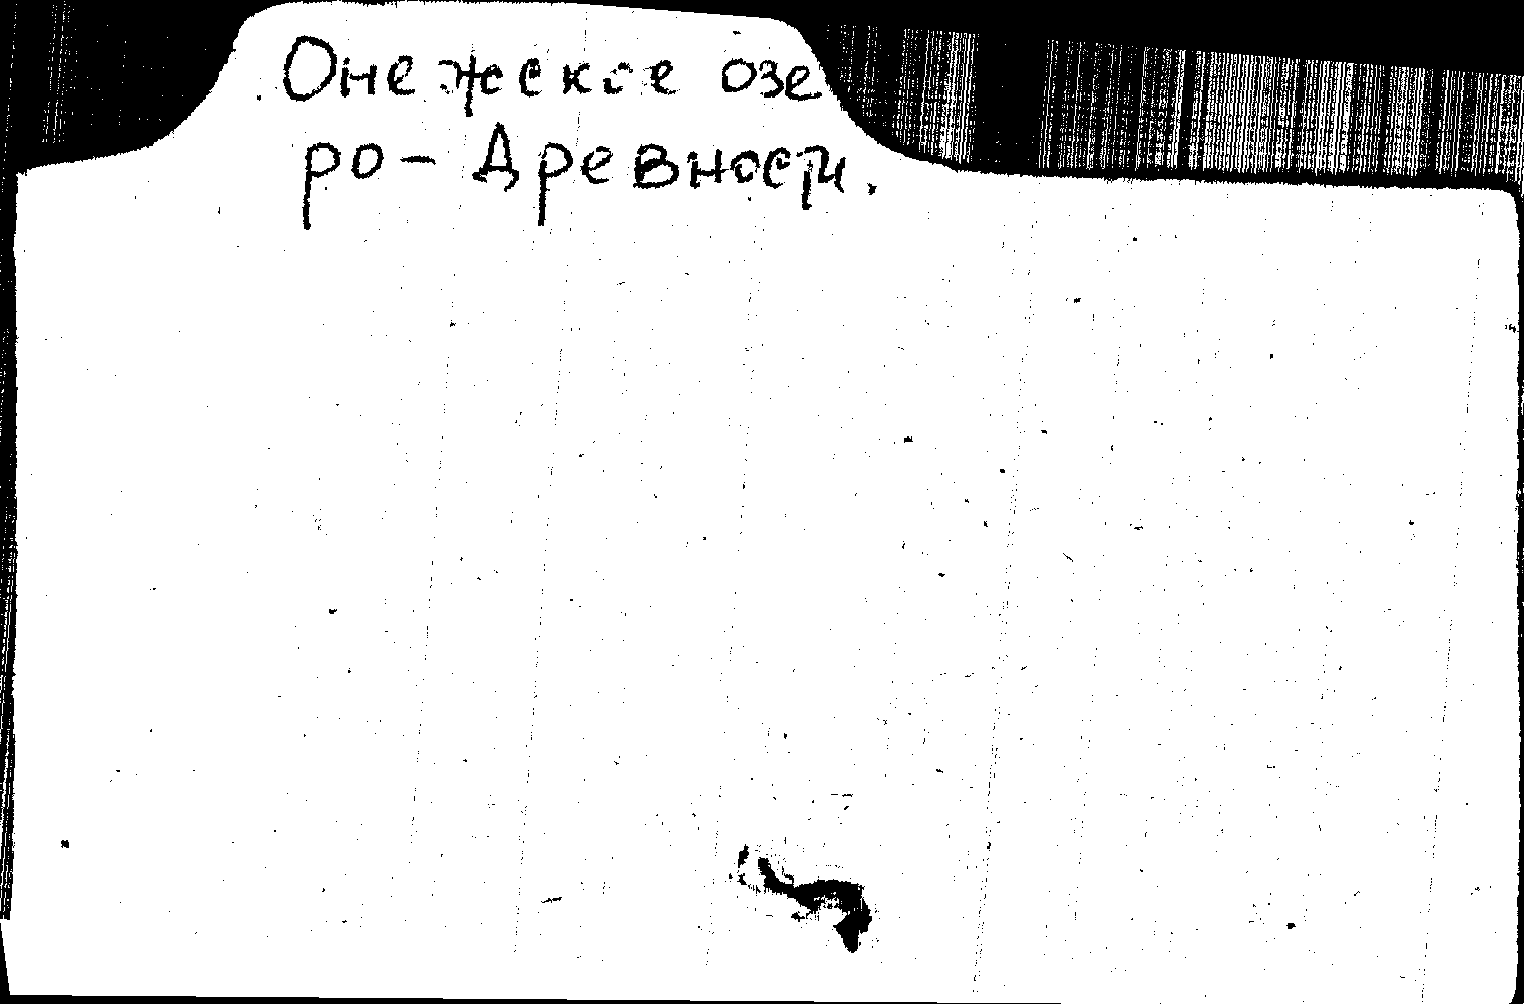 Онежское озе
ро - Древности.